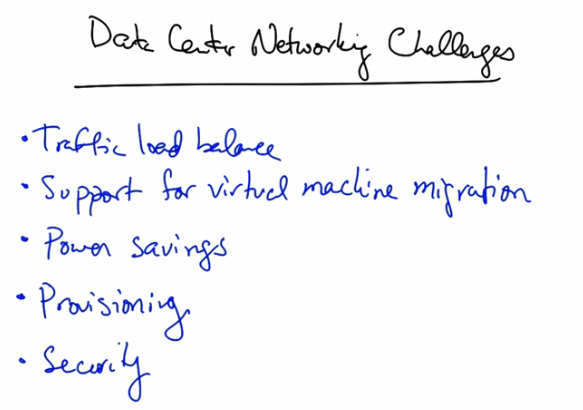 Data Center Networking Challenges
• Traffic load balance
• Support for virtual machine migration
• Power savings
• Provisioning
• Security